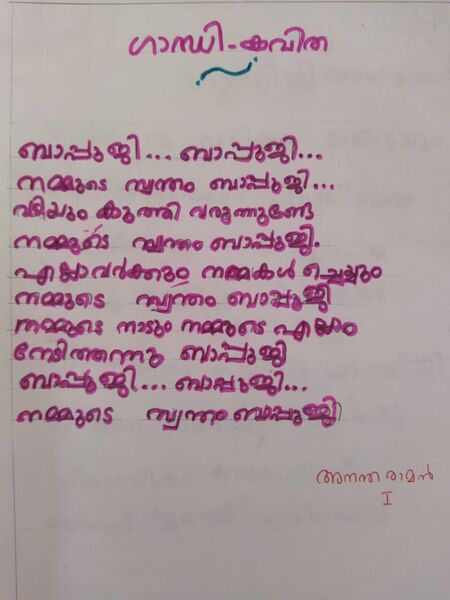 ഗാന്ധി-കവിത
ബാപ്പുജി... ബാപ്പുജി...
നമ്മുടെ സ്വന്തം ബാപ്പുജി...
വടിയും കുത്തി വരുന്നുണ്ടേ
നമ്മുടെ സ്വന്തം ബാപ്പുജി.
എല്ലാവർക്കും നന്മകൾ ചെയ്യും
നമ്മുടെ സ്വന്തം ബാപ്പുജി
നമ്മുടെ നാടും നമ്മുടെ എല്ലാം
നേടിത്തന്നു ബാപ്പുജി
ബാപ്പുജി.... ബാപ്പുജി...
നമ്മുടെ സ്വന്തം ബാപ്പുജി
അനന്തരാമൻ
I